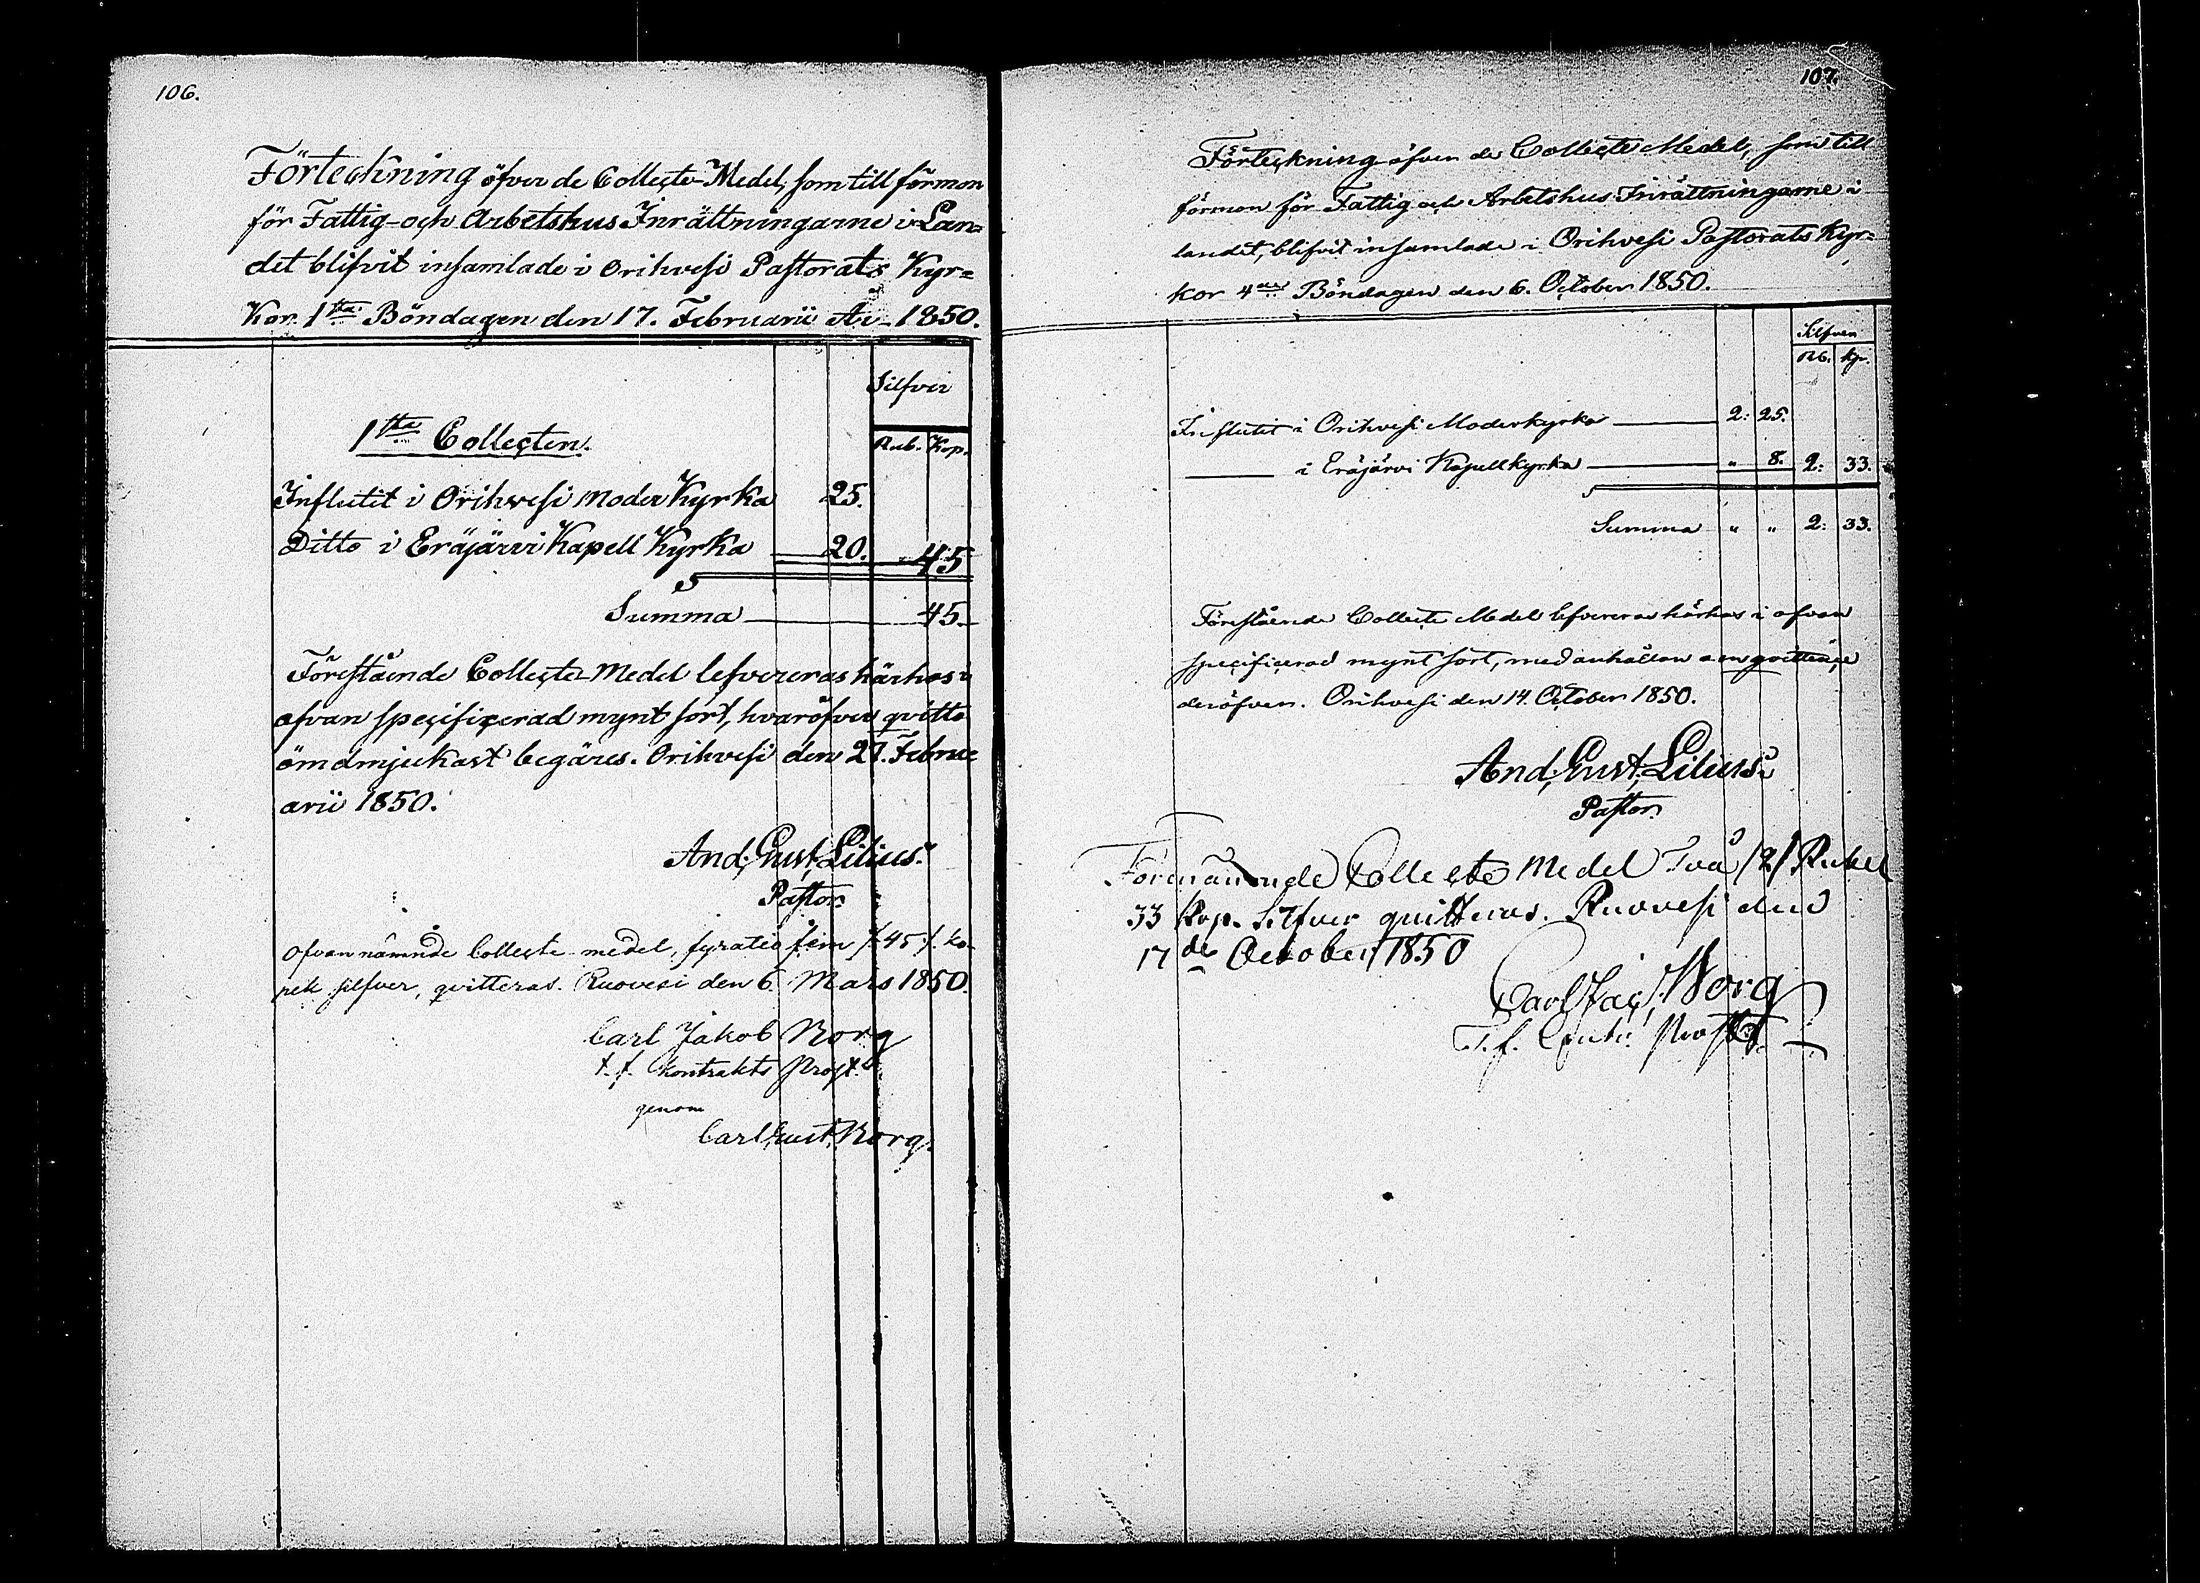 106.
Förteckning öfver de Collecte-Medel, som till förmon
för Fattig- och Arbetshus Inrättningarne i Lan=
det blifvit insamlade i Orihvesi Pastorats Kyr=
Kor. 1sta Böndagen den 17. Februarii A:o 1850.
Silfver
1sta Collecten.
Rub. Kop.
Influtit i Orihvesi moder Kyrka 25.
Ditto i Eräjärvi Kapell Kyrka 20. 45
Summa 45.
Förestående Collecte-Medel lefvereras härhos i
ofvan specificerad mynt sort, hvaröfver qvitto
ömdmjukast begäres. Orihvesi den 27. Febru=
arii 1850.
And. Gust. Lilius.
Pastor.
Ofvannämnde Collecte medel, fyratio fem /:45:/ ko-
pek silfver, qvitteras. Ruovesi den 6. Mars 1850.
Carl Jakob Borg
t. f. Kontrakts Prost.
genom
Carl Gust. Borg.
107.
Förteckning öfver de Collecte Medel, som till
förmon för Fattig och Arbetshus Inrättningarne i
landet, blifvit insamlade i Orihvesi Pastorats Kyr=
kor 4de Böndagen den 6. October 1850.
Silfver
Rb. Kp.
Influtit i Orihvesi Moderkyrka 2: 25.
i Eräjärvi Kapellkyrka " 8. 2: 33.
Summa " " 2: 33.
Förestående Collecte Medel lefvereras härhos i ofvan
specificerad mynt sort, med anhållan om qvittence
deröfver. Orihvesi den 14. October 1850.
And. Gust. Lilius.
Pastor.
Förenämnde Collecte Medel Två /2/ Rubel
33 Kop. Silfver quitteras. Ruovesi den
17de October 1850
Carl Jac. Borg
T. f. Contr. Prost.